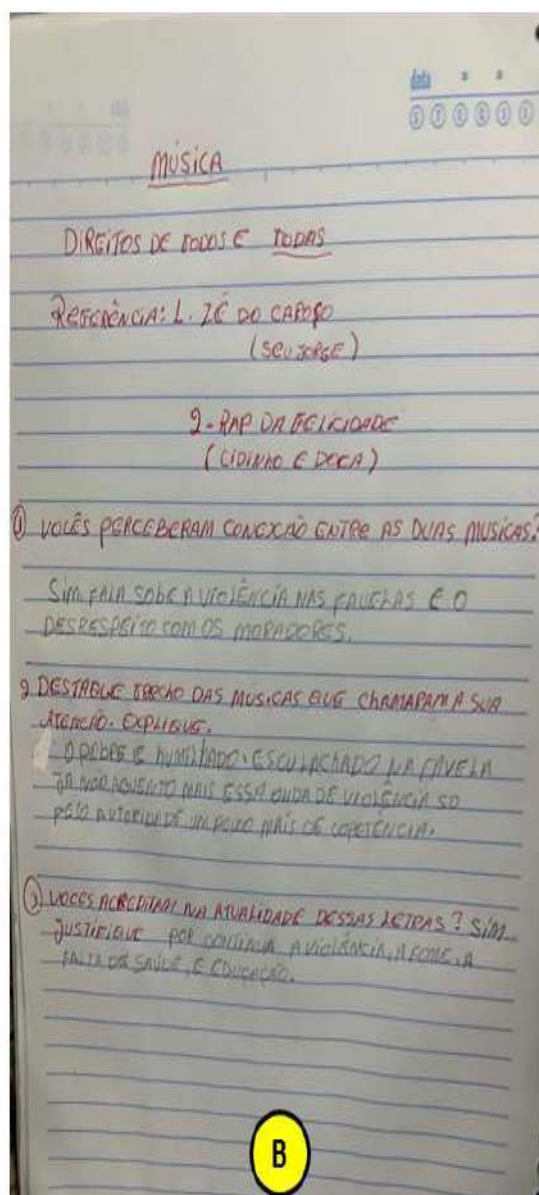 data
MÚSICA
DIREITOS DE TODOS E TODAS
REFERÊNCIA: 1. ZÉ DO CAROÇO
(SEU JORGE)
2- RAP DA FELICIDADE
(CIDINHO E DOCA)
① VOCÊS PERCEBERAM CONEXÃO ENTRE AS DUAS MUSICAS?
Sim. FALA SOBE A VIOLÊNCIA NAS FAVELAS E O
DESRESPEITO COM OS MORADORES.
2 DESTAQUE TRECHO DAS MÚSICAS QUE CHAMARAM A SUA
ATENCÃO. EXPLIQUE.
O POBRE E HUMILHADO, ESCULACHADO NA FAVELA
JÁ NÃO AGUENTO MAIS ESSA ONDA DE VIOLÊNCIA SO
PEÇO AUTORIDADE UM POUCO MAIS DE COPETÊNCIA.
③ VOCES ACREDITAM NA ATUALIDADE DESSAS LETRAS? SIM
JUSTIFIQUE POR CONTINUA A VIOLÊNCIA, A FOME, A
FALTA DE SAÚDE, E EDUCAÇÃO.
B